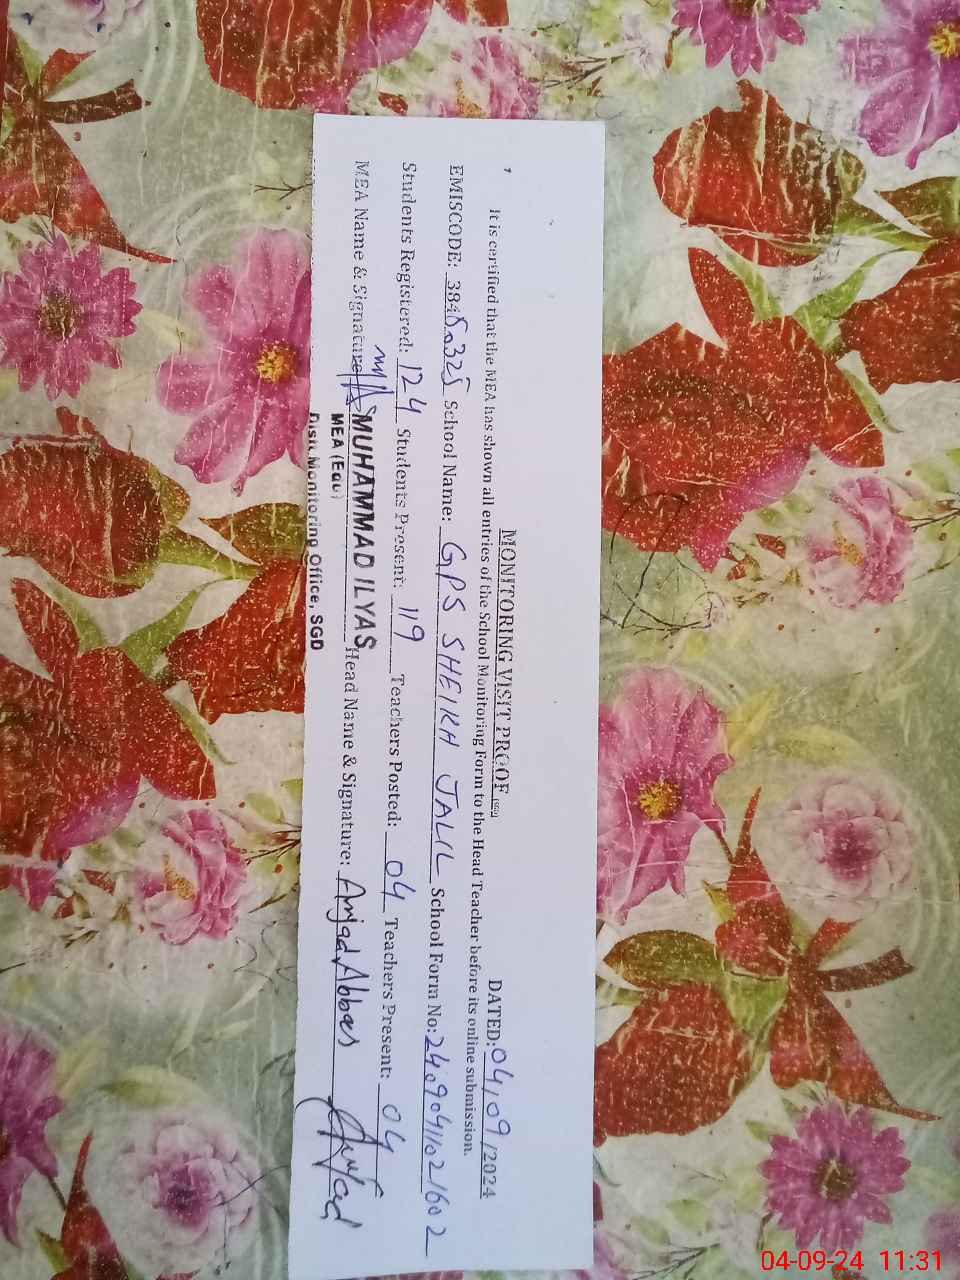 MONITORING VISIT PROOF
DATED: 04/09/2024
It is certified that the MEA has shown all entries of the School Monitoring Form to the Head Teacher before its online submission.
EMISCODE: 38450325 School Name: GPS SHEIKH JALIL School Form No: 24090411021602
Students Registered: 124 Students Present: 119 Teachers Posted: 04 Teachers Present: 04
MEA Name & Signature MUHAMMAD ILYAS Head Name & Signature: Amjad Abbas Amjad
MEA (Edu)
Distt Monitoring Office, SGD
04-09-24 11:31